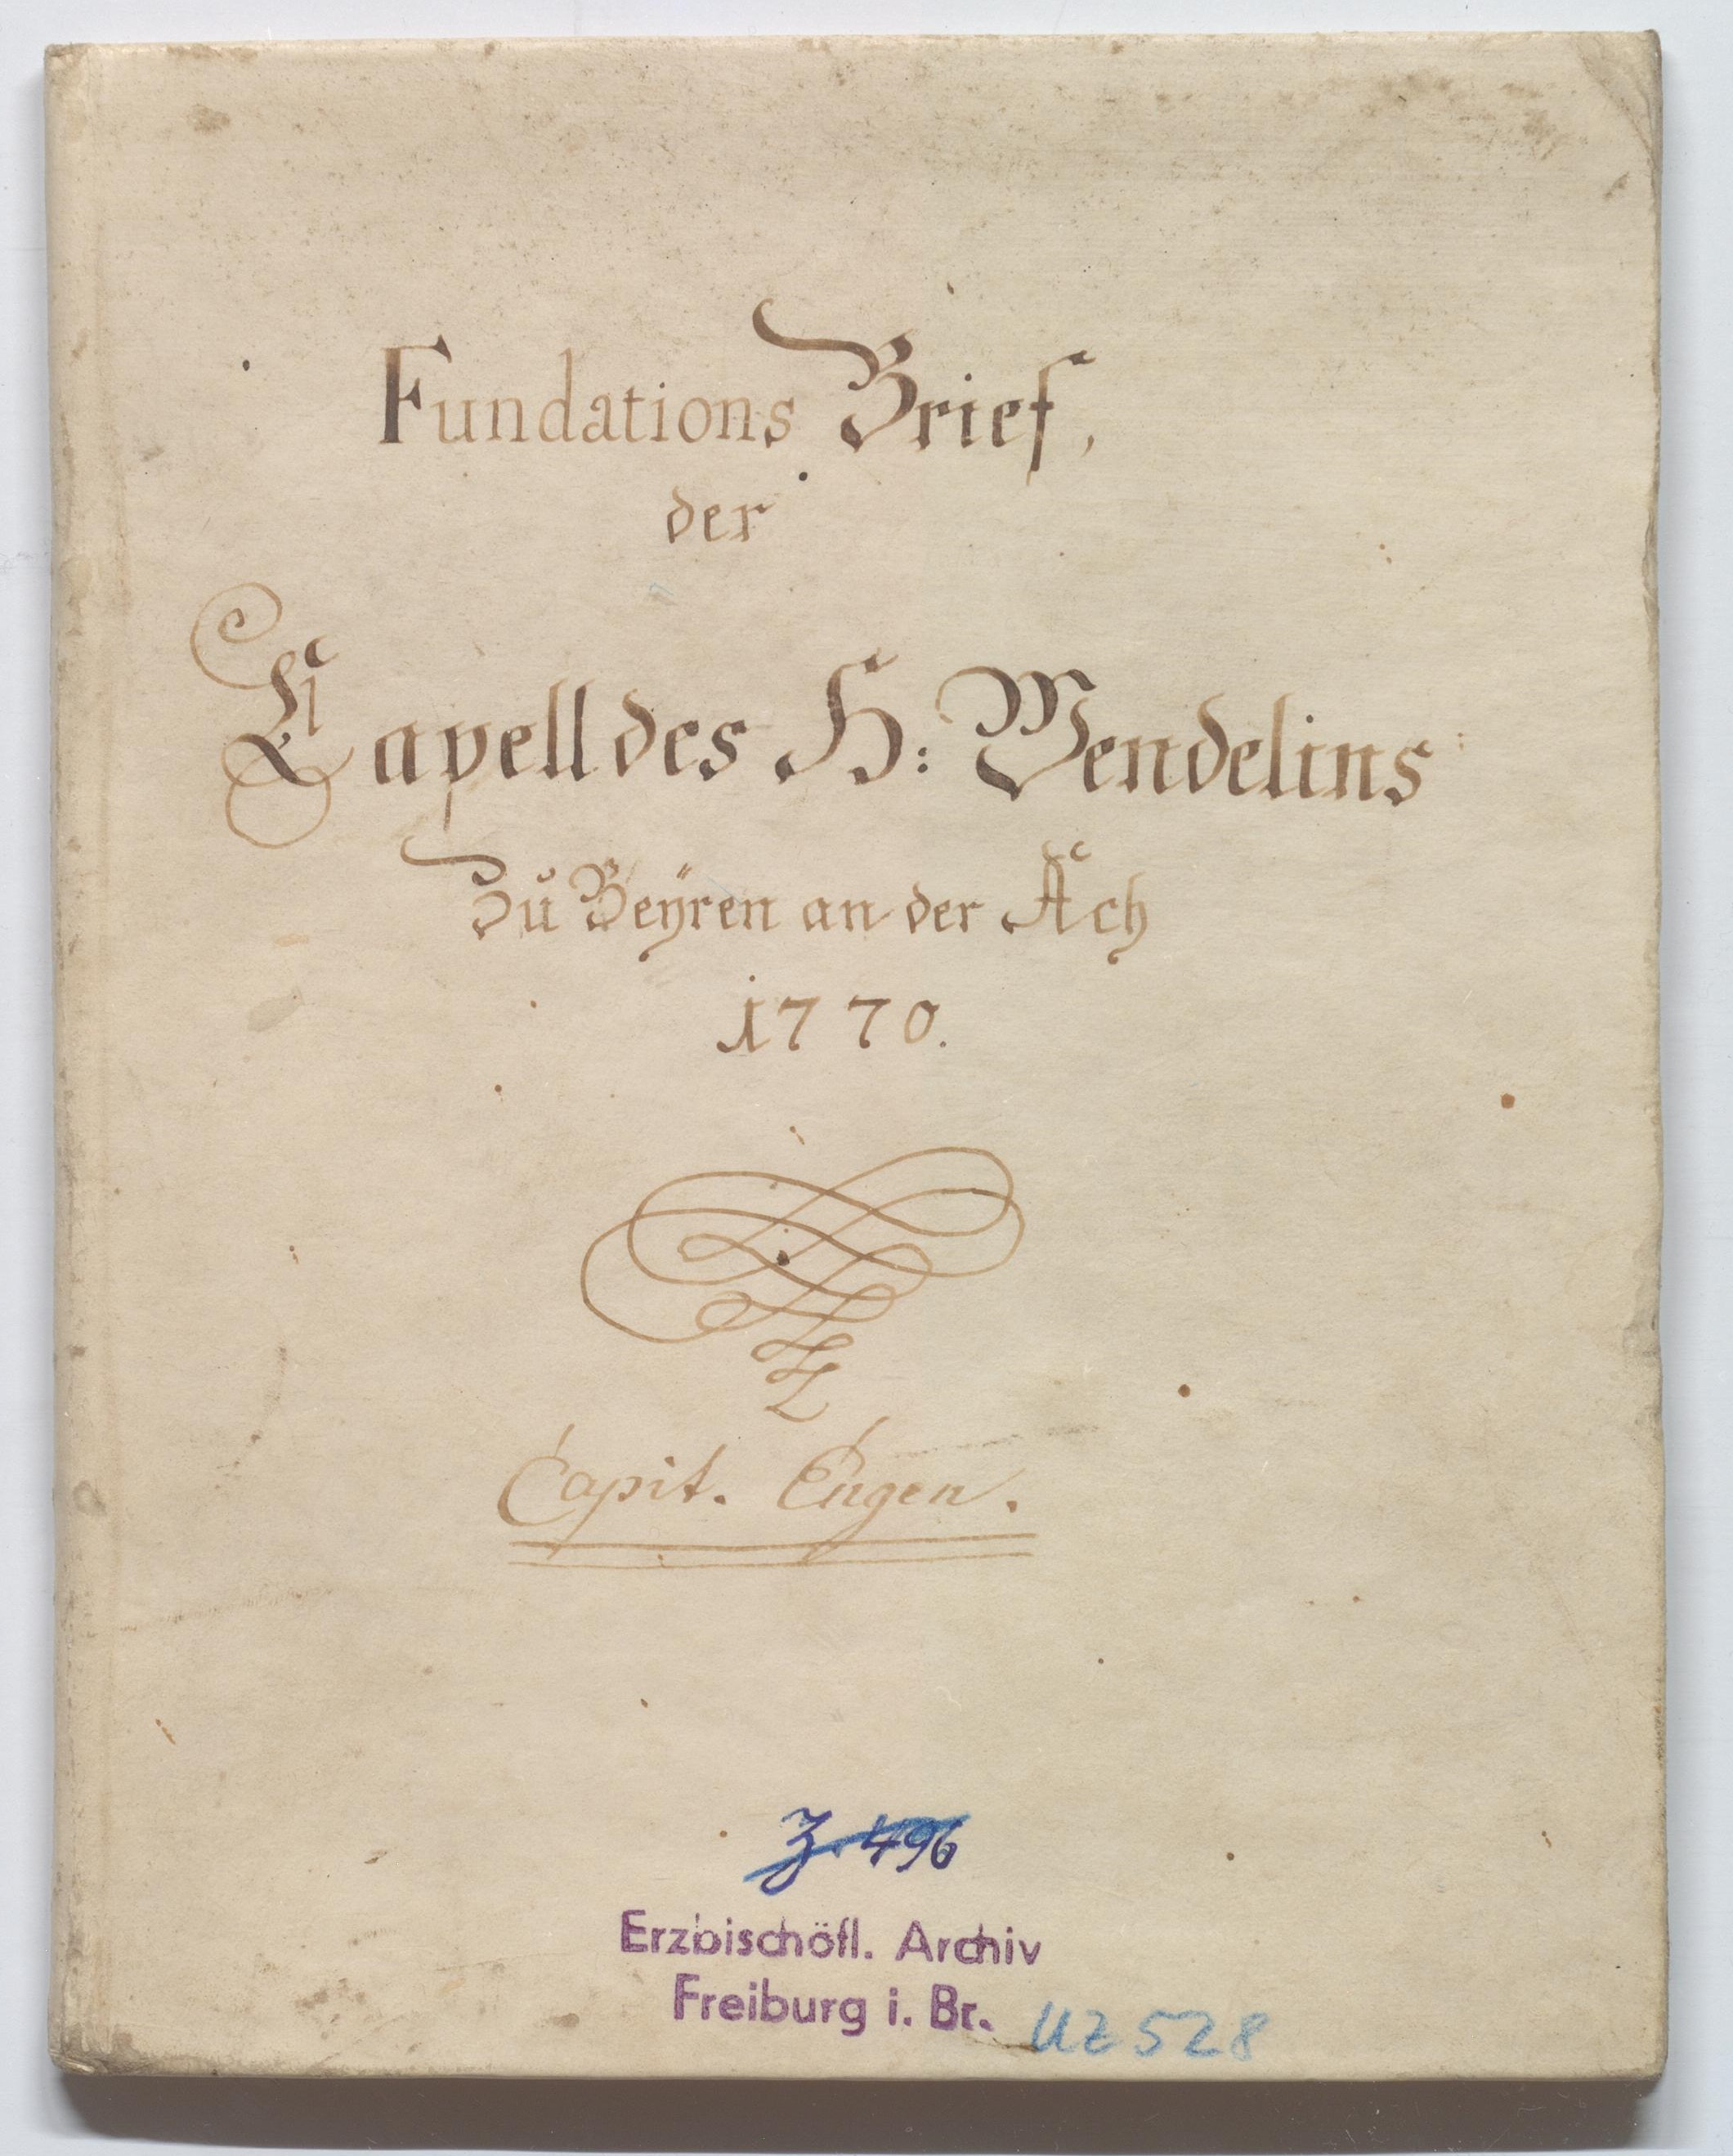 Fundations Brief,
der
Kapell des H: Wendelins
Zů Beÿren an der Ach
1770.
Capit. Engen.
Z. 496
Erzbischöfl. Archiv
Freiburg i. Br. UZ 528